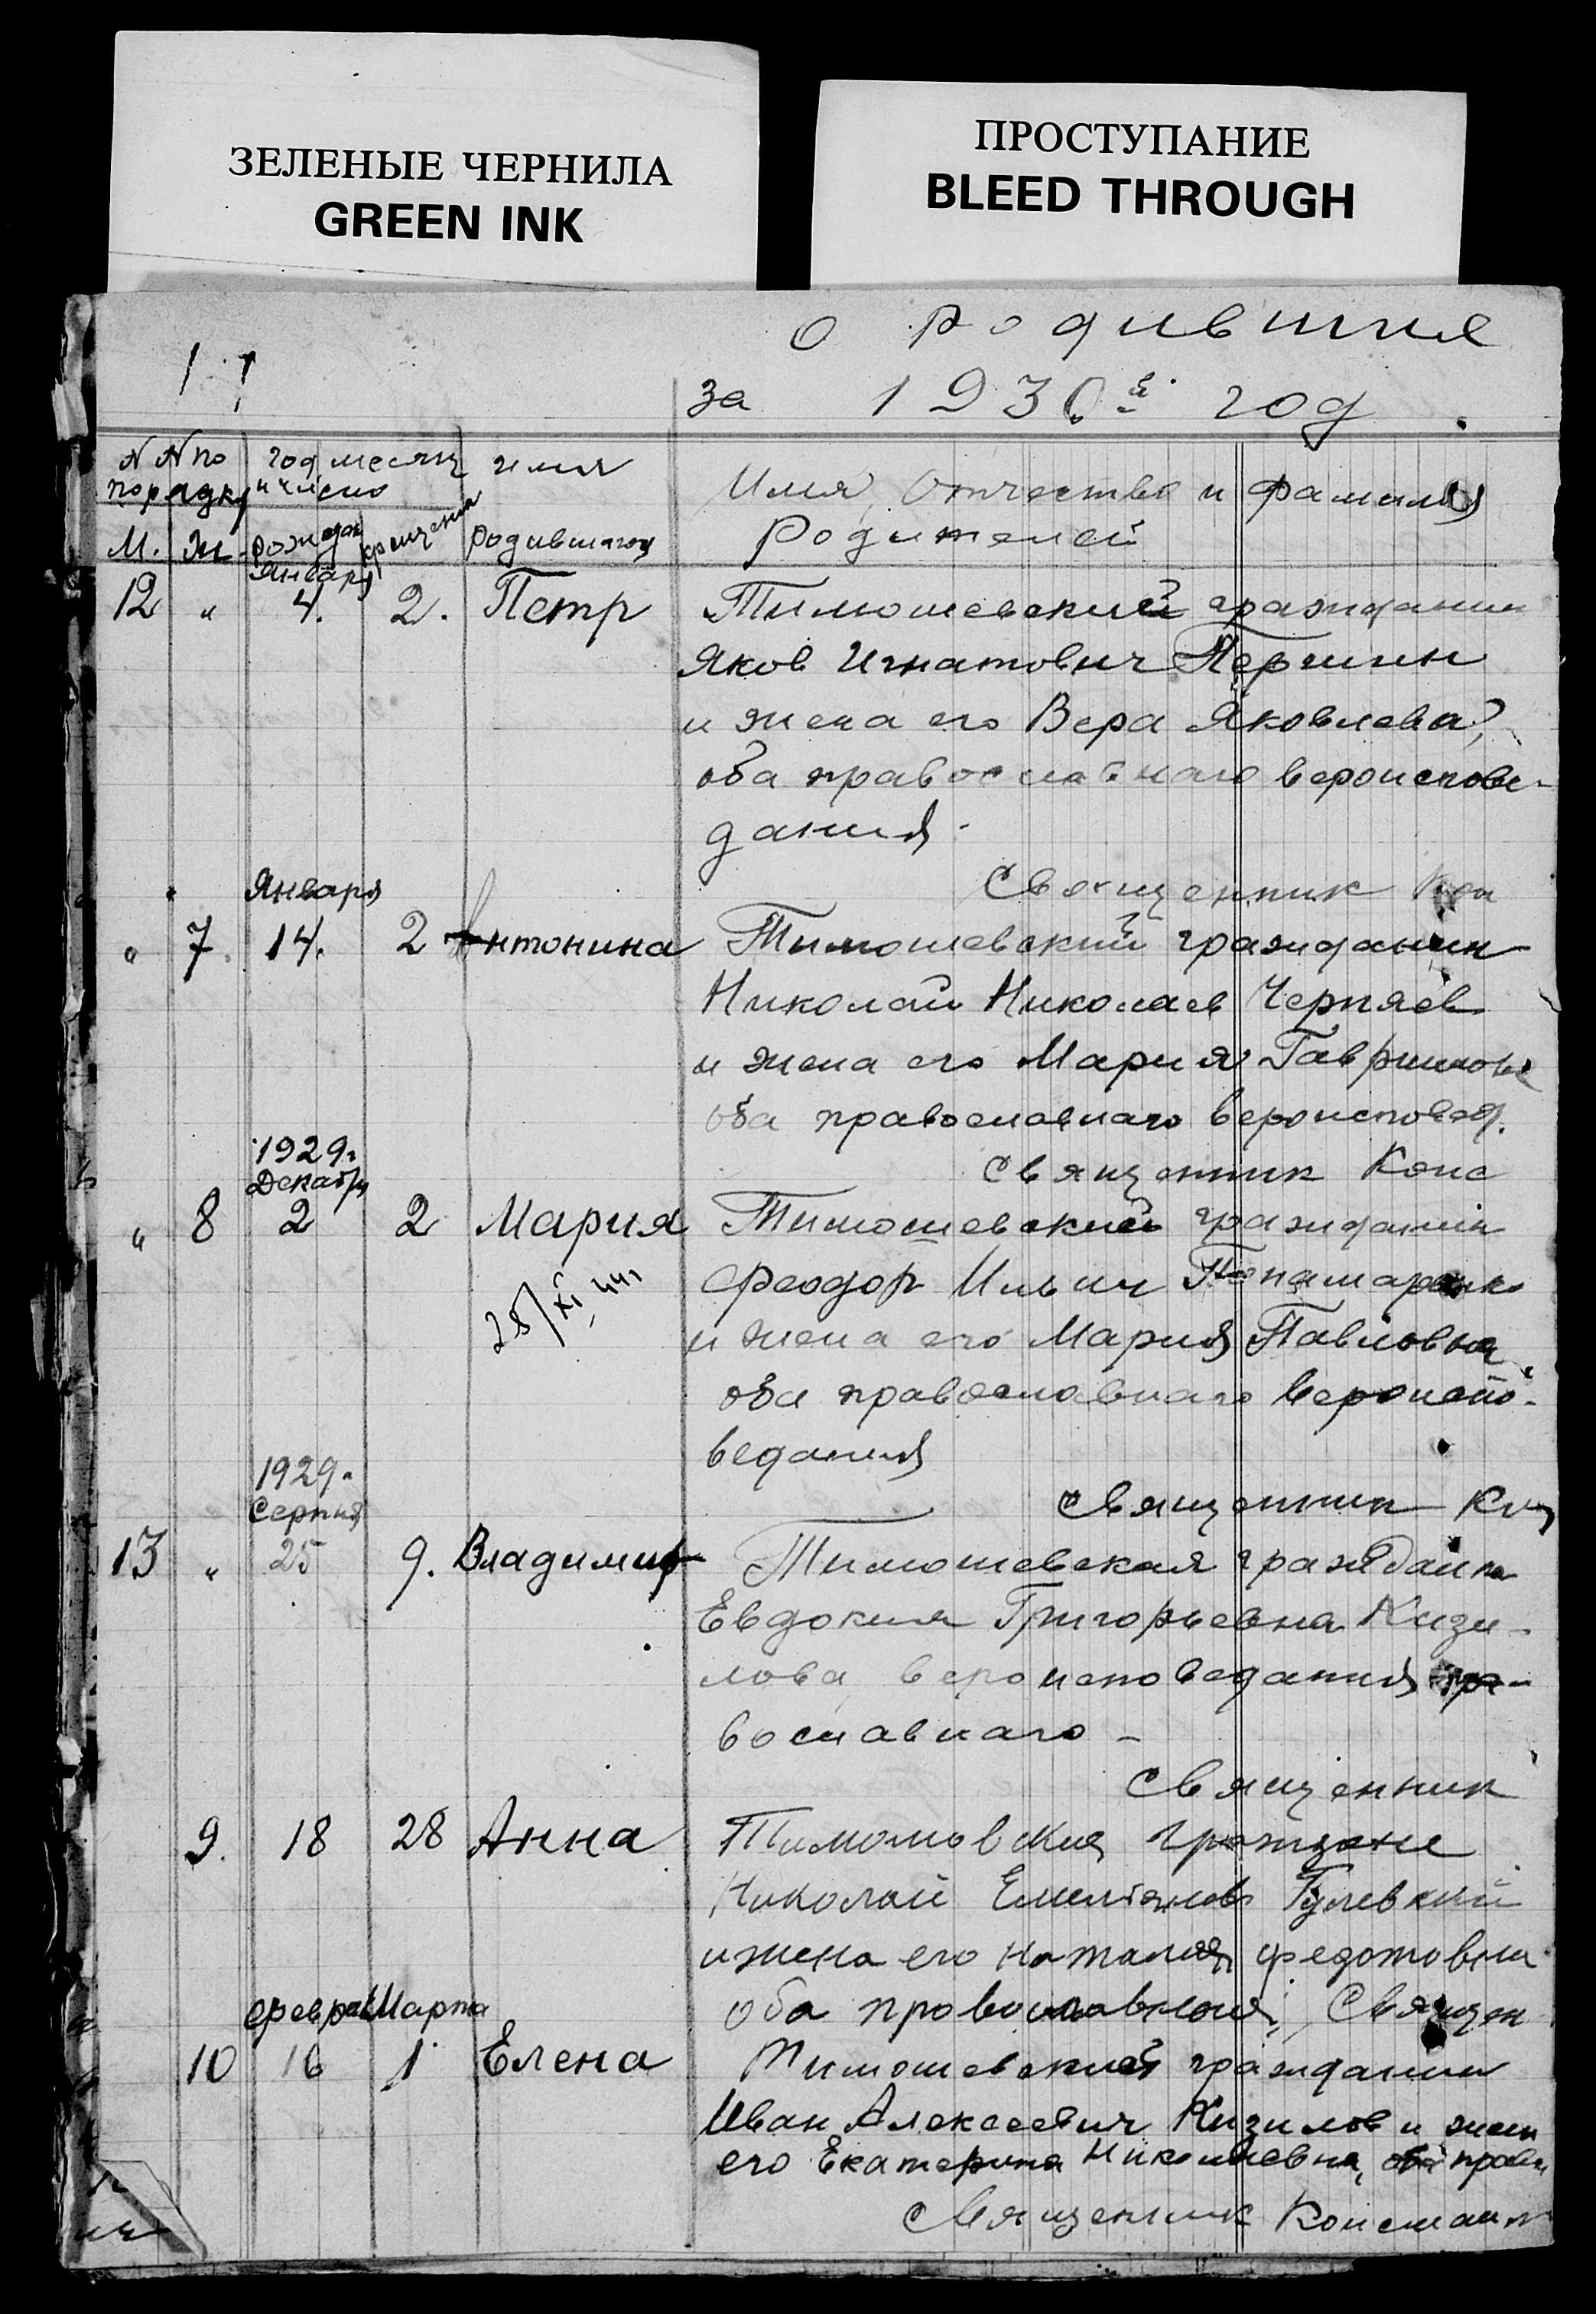 ЗЕЛЕНЫЕ ЧЕРНИЛА
GREEN INK
ПРОСТУПАНИЕ
BLEED THROUGH
О родившихся
за 1930й год.
NN по порядку
год месяц и число
имя
Имя, Отчество и фамилия
М. Ж. рожден крещения родившагося
Родителей
Января
12 " 4. 2. Петр Тимошевский гражданин
Яков Игнатович Першин
и жена его Вера Яковлева,
оба православнаго вероиспове-
дания.
Священник Кон
Января
" 7. 14. 2 Антонина Тимошевский гражданин
Николай Николаев Черняев
и жена его Мария Гаврилове
оба православнаго вероисповед.
Священник Конс
1929.
Декабря
" 8 2 2 Мария Тимошевский гражданин
Феодор Ильич Понамаренко
28/XI 44.
и жена его Мария Павловна
оба православнаго вероиспо-
ведания
Священник
1929.
Серпня
13 " 25 9. Владимир Тимошевская граждании
Евдокия Григорьевна Кизи-
лова, вероисповедания пра-
вославнаго -
Священник
9. 18 28 Анна граждане
Николай Емельянов Гулевский
и жена его Наталия Федотовна
оба православныя, Священ
Феврал Марта
10 16 1 Елена Тимошевский гражданин
Иван Алексеевич Кизилов и жен
его Екатерина Николаевна, оба право
Священник Константи